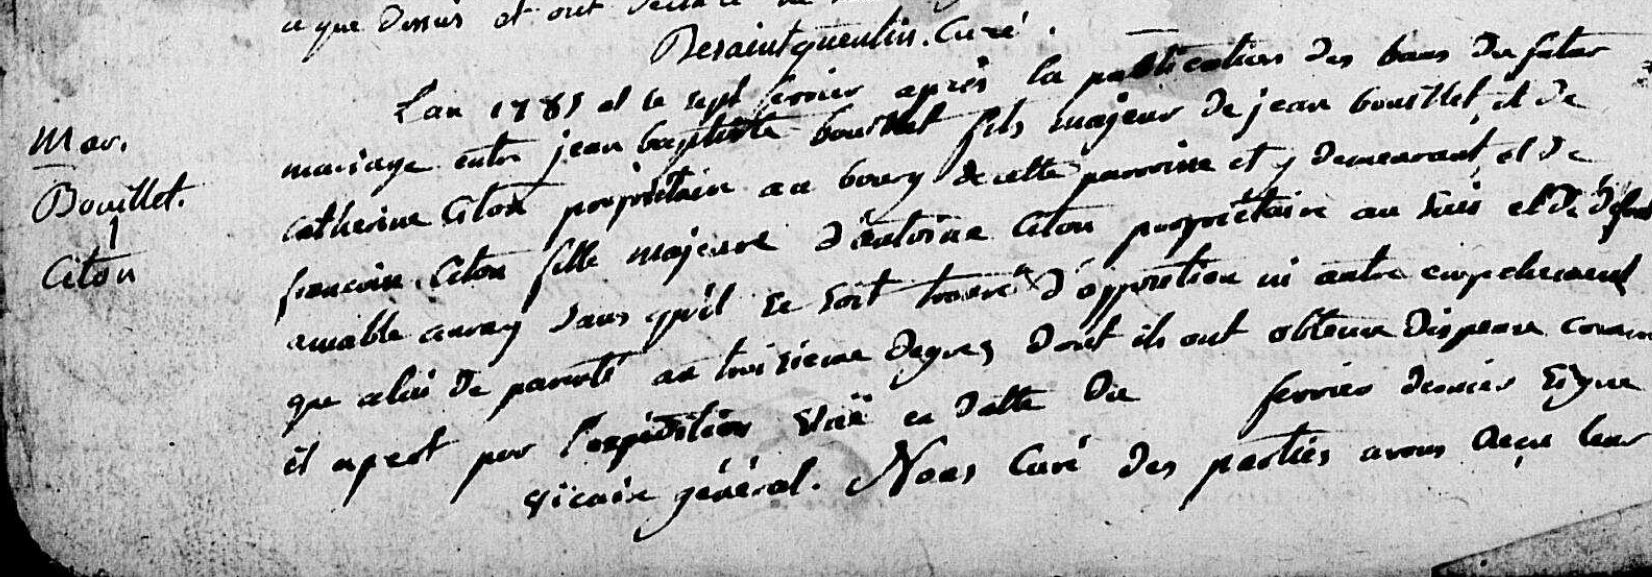 a que dessus et ont declaré
Desaintquentin. Curé.
L'an 1785 et le sept fevrier après la publication des bans du futur
Mar.
mariage entre jean baptiste bouillet fils majeur de jean bouillet, et de
Bouillet.
catherine Citon proprietaire au bourg de cette parroisse et y demeurant, et de
1
francoise Citon fille majeure d'antoine Citon proprietaire au et de defunt
Citon
amable auray sans qu'il se soit trouvé d'opposition ni autre empechement
que celui de parenté au troisieme degrez dont ils ont obtenu dispense comme
il apert par l'expédition en datte du fevrier dernier signé
vicaire général. Nous Curé des parties avons reçu leur